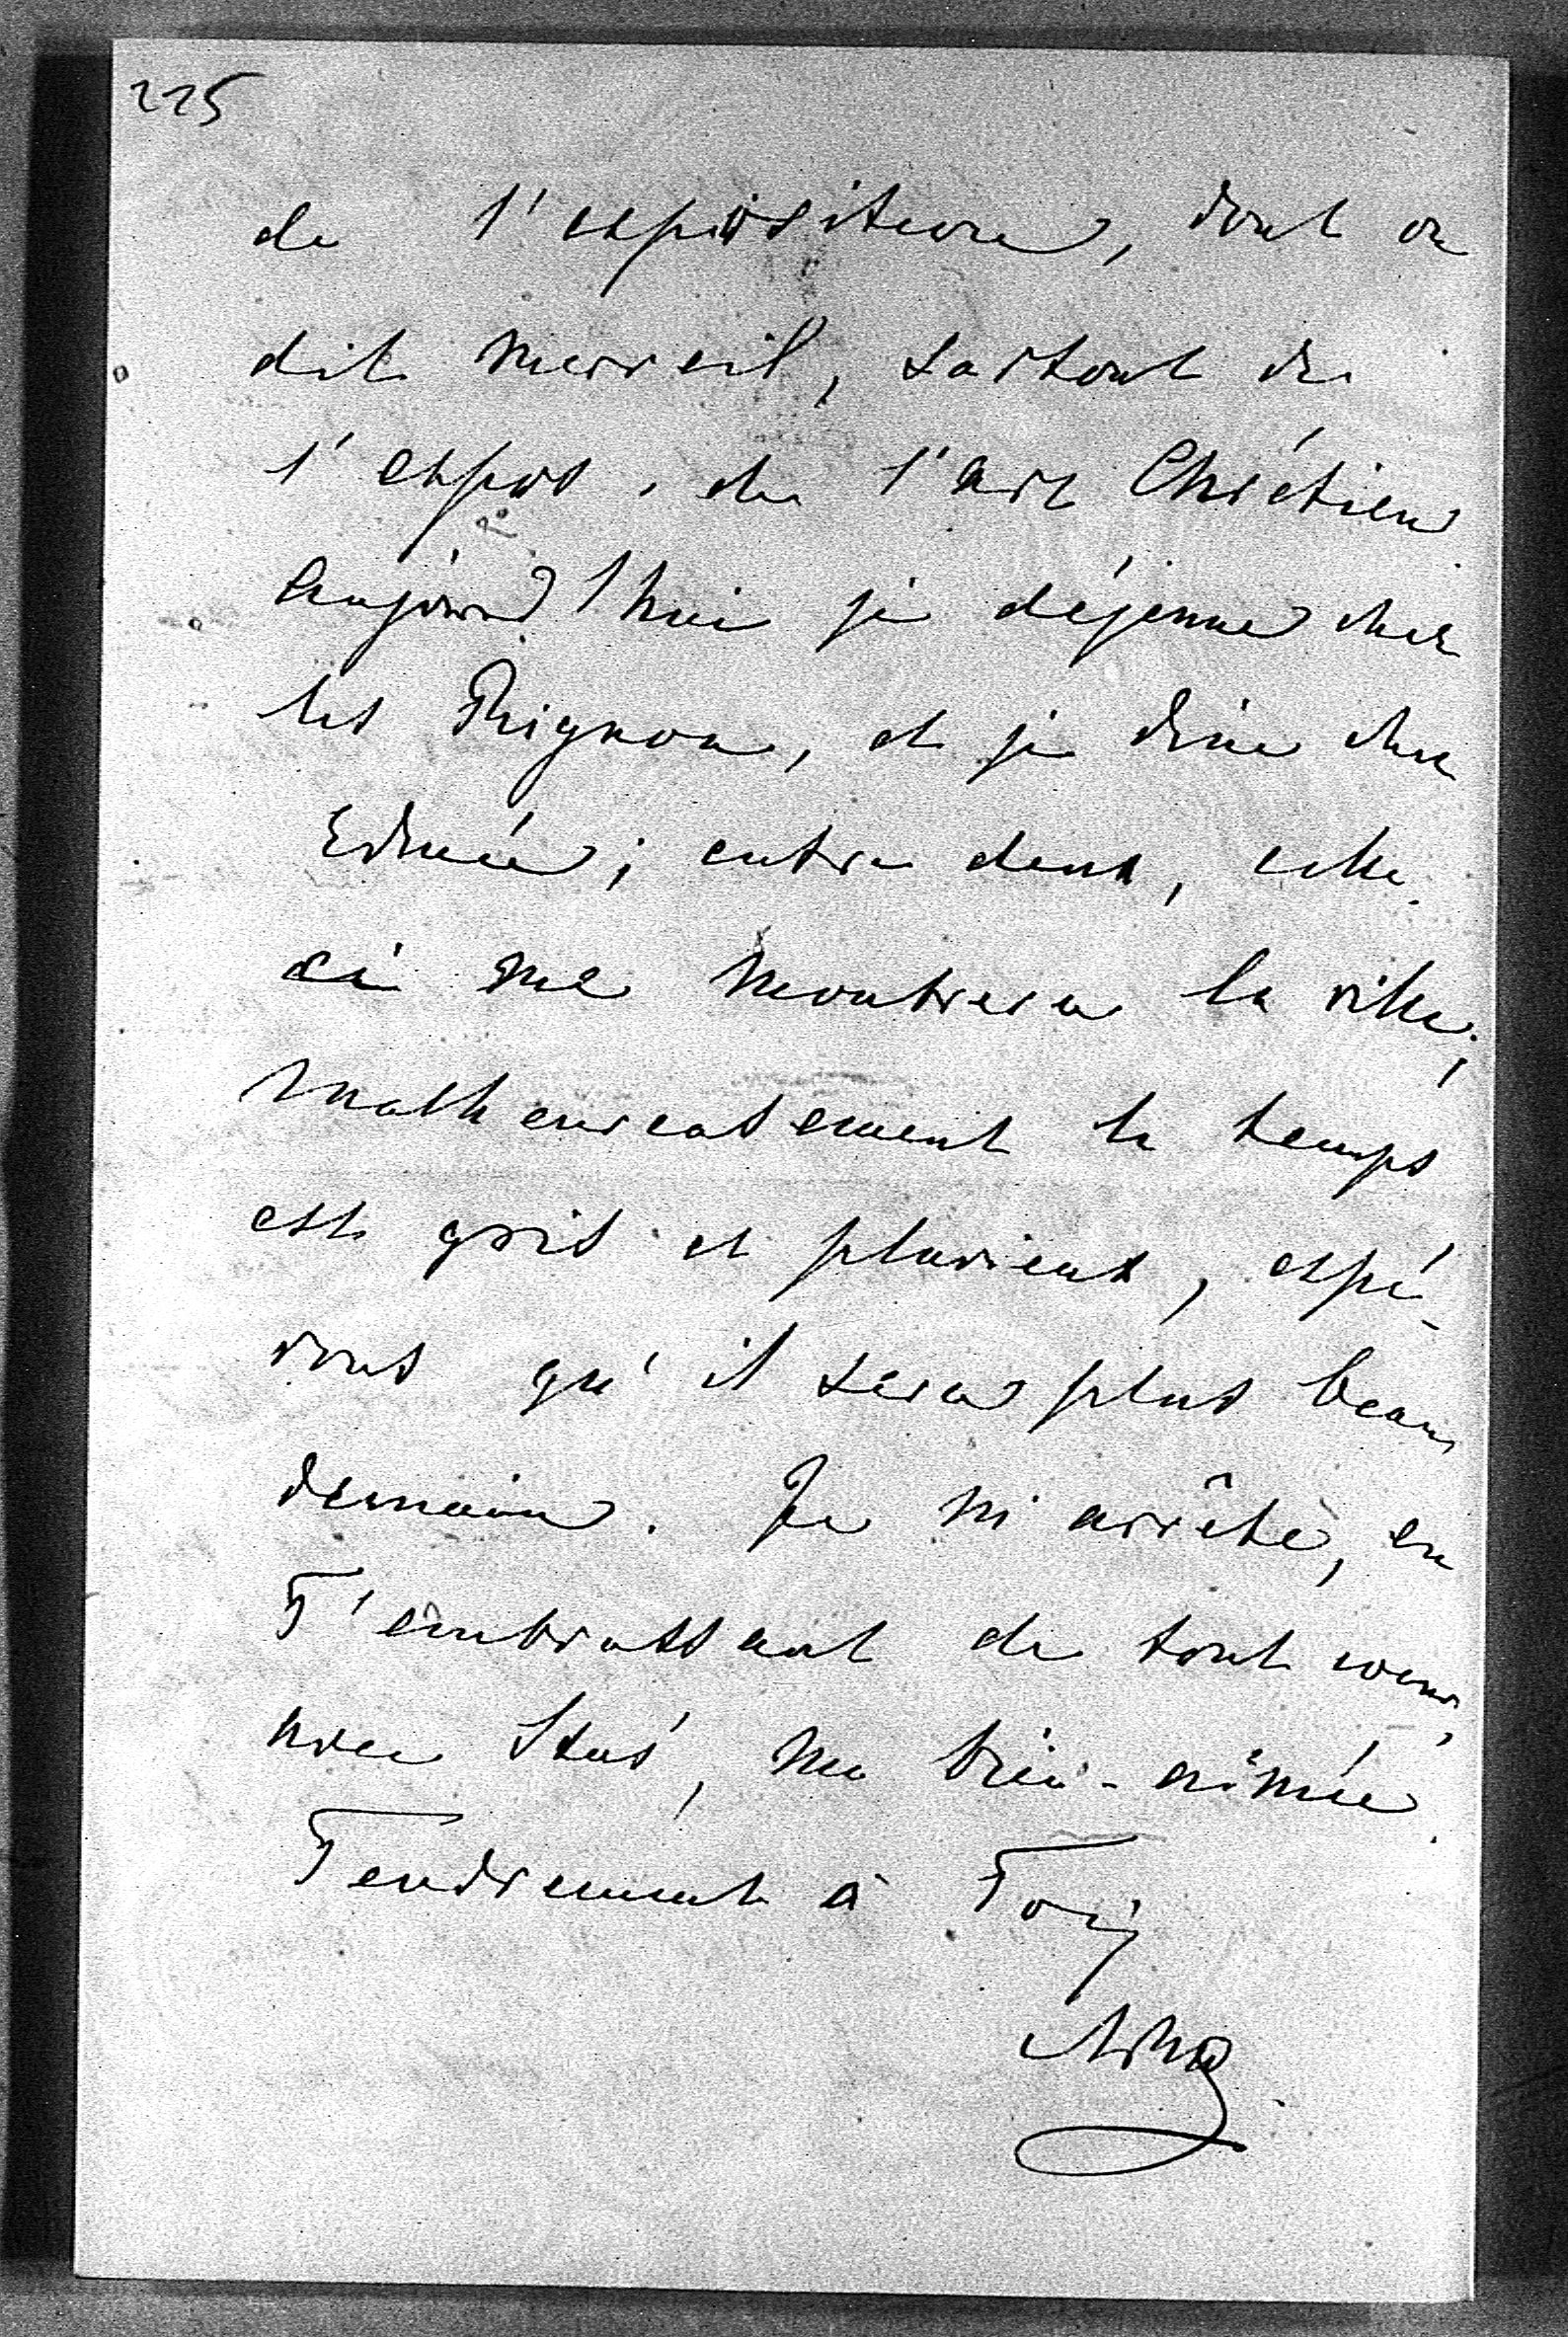 225
de l'exposition, dont on
dit merveil, surtout de
l'expos. de l'art Chrétien
Aujourd'hui je déjeune chez
les Rignon, et je dine chez
Edmée; entre deux, celle-
ci me montrera la ville;
malheureusement le temps
est gris et pluvieux, espé-
rons qu'il sera plus beau
demain. Je m'arrête, en
T'embrassant de tout coeur,
avec Stús, ma bien-aimée.
Tendrement à Toi,